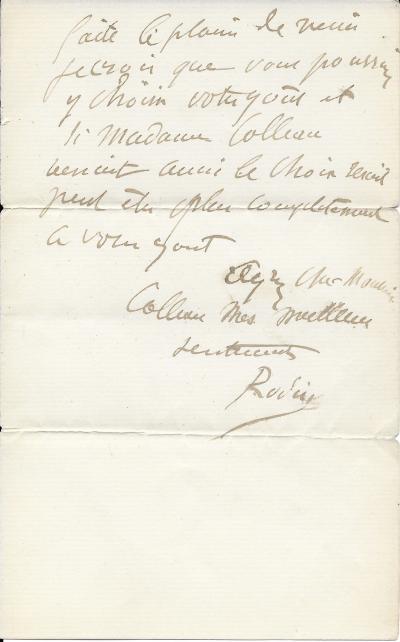 faite le plaisir de venir
je crois que vous pourriez
y choisir votre goût et
si Madame Colleau
venait aussi le choix serait
peut être plus completement
a votre gout
cher Monsieur
Colleau mes meilleurs
sentiments
Rodin